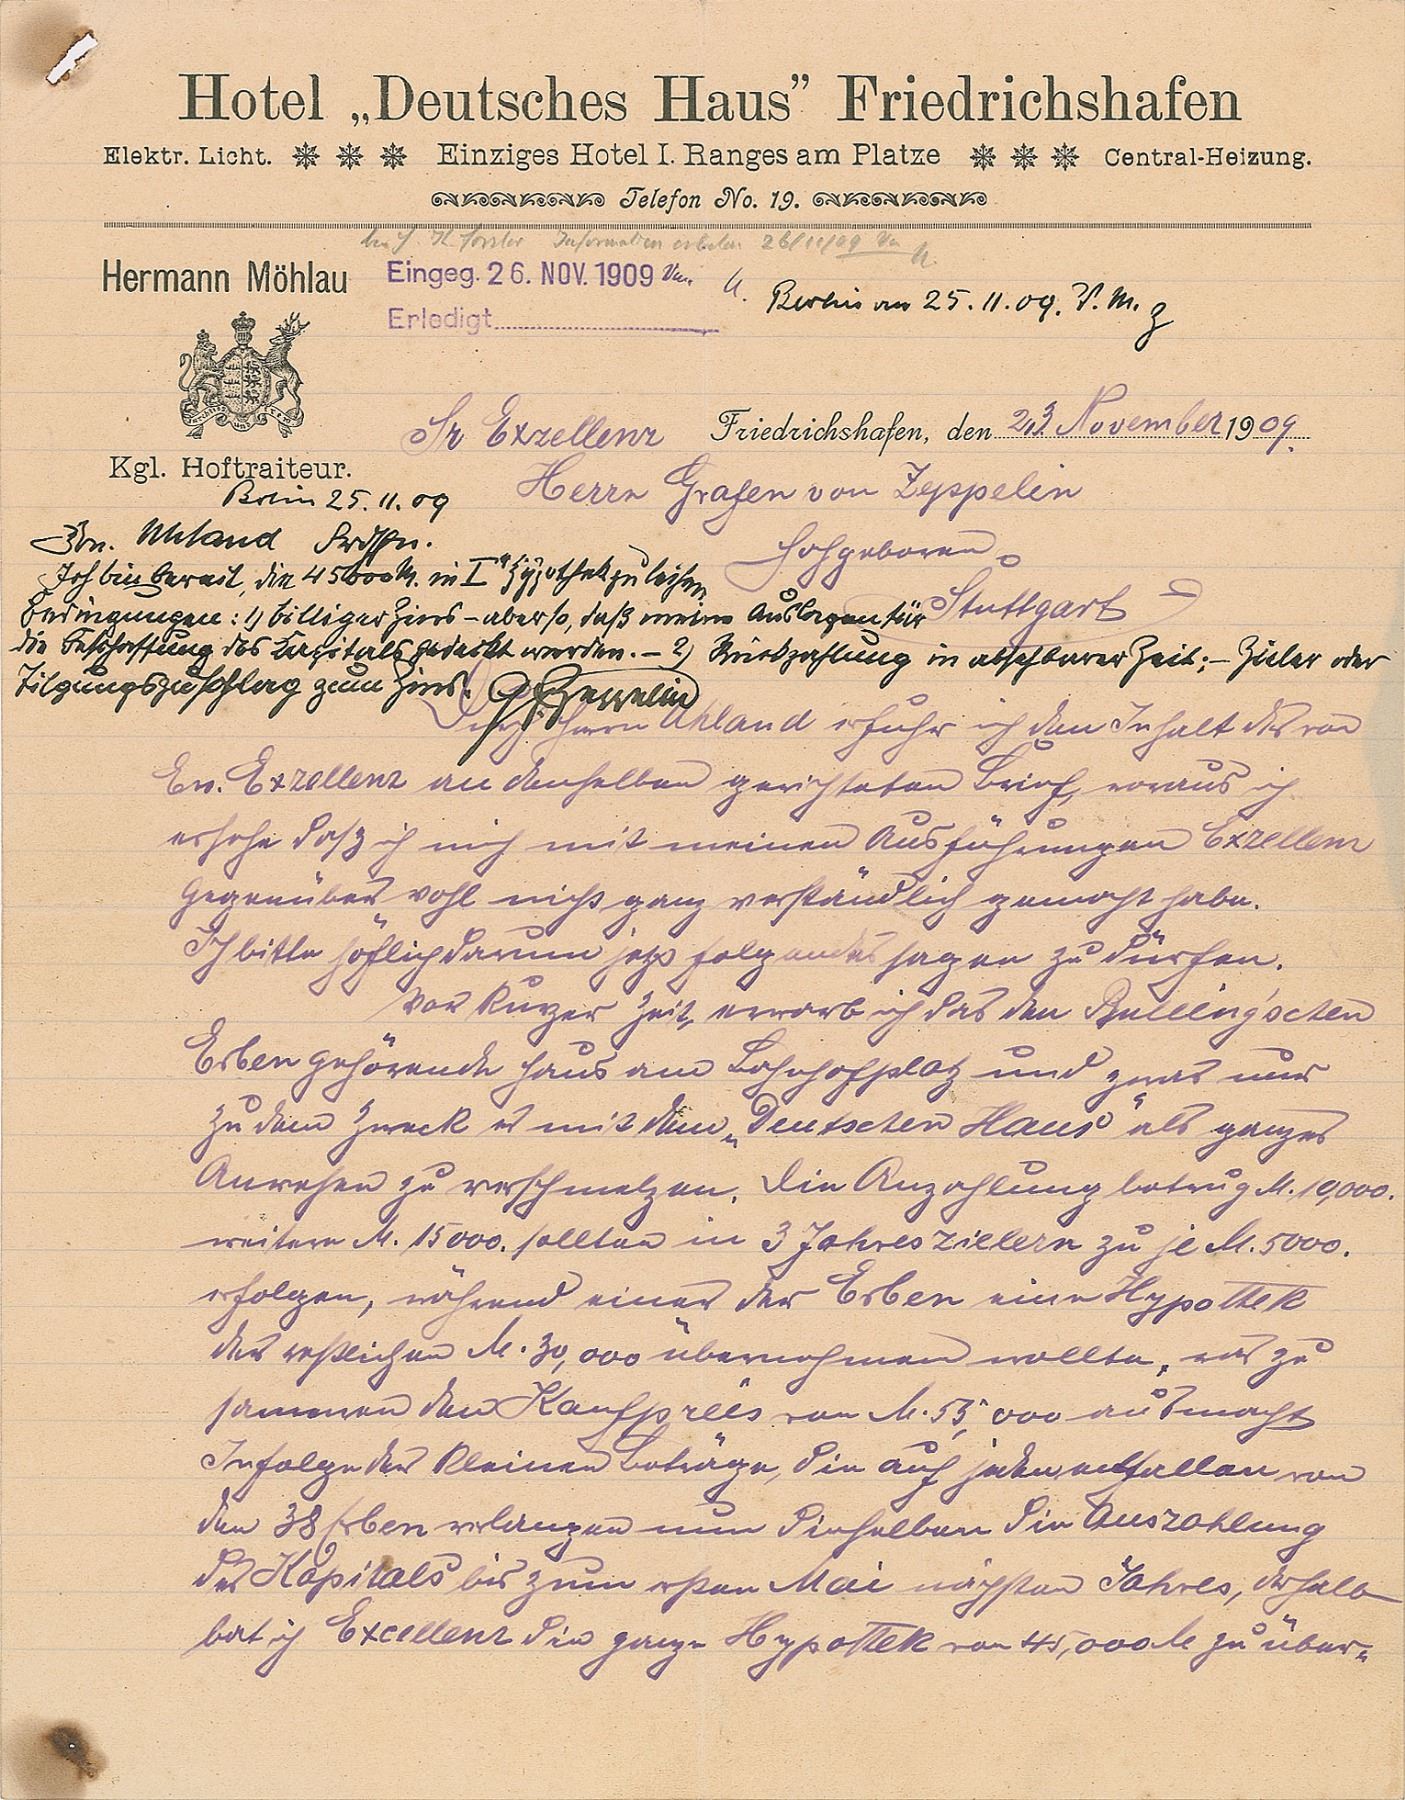 Hotel „Deutsches Haus” Friedrichshafen
Elektr. Licht. Einziges Hotel I. Ranges am Platze Central-Heizung.
Telefon No. 19.
Information erbeten 26/11/09
Hermann Möhlau
Eingeg. 26. NOV. 1909
Erledigt
Berlin am 25.11.09.
Kgl. Hoftraiteur.
Friedrichshafen, den 23. November 1909.
Sr Exzellenz
Herrn Grafen von Zeppelin
Hochgeboren
Stuttgart
Berlin 25.11.09
Hrn. Uhland Frdhfn.
Ich bin bereit, die 45000 M. in I. Hypothek zu leihen
Bedingungen: 1) billiger Zins – aber so, daß meine Auslagen für
die Beschaffung des Kapitals gedeckt werden. – 2) Rückzahlung in absehbarer Zeit; – Zieler oder
Tilgungszuschlag zum Zins. GfZeppelin
Durch Herrn Uhland erfuhr ich den Inhalt des von
Ew. Exzellenz an denselben gerichteten Brief, woraus ich
ersehe daß ich mich mit meinen Ausführungen Exzellenz
gegenüber wohl nicht ganz verständlich gemacht habe.
Ich bitte höflich darum jetzt folgendes sagen zu dürfen.
Vor kurzer Zeit, erwarb ich das den
Erben gehörende Haus am Bahnhofplatz und zwar nur
zu dem Zweck es mit dem „Deutschen Haus“ als ganzes
Anwesen zu verschmelzen. Die Anzahlung betrug M. 10,000.
weitere M. 15000. sollten in 3 Jahreszielern zu je M. 5000.
erfolgen, während einer der Erben eine Hypottek
der restlichen M. 30,000 übernehmen wollte, was zu
sammen den Kaufpreis von M. 55,000 ausmacht
Infolge der kleinen Beträge, die auf jeden entfallen von
den 38 Erben verlangen nun dieselben die Auszahlung
des Kapitals bis zum ersten Mai nächsten Jahres, deshalb
bat ich Excellenz die ganze Hypottek von 45,000 M zu über-